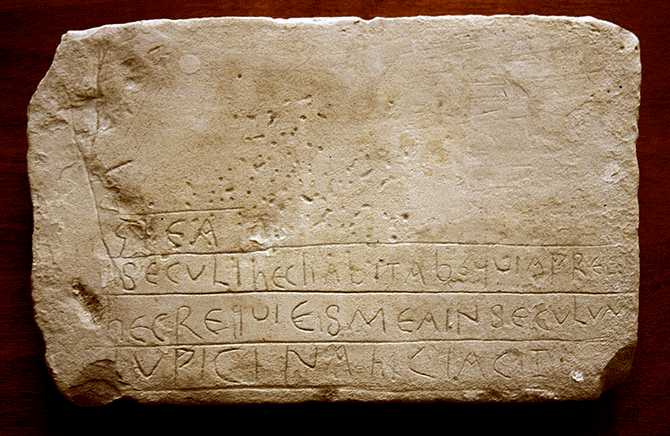 GI EA
SECULI hEC hAbITAbO qUIA PREL
hEC REqUIES MEA IN SECULUM
LUPICINA hIC IACIT